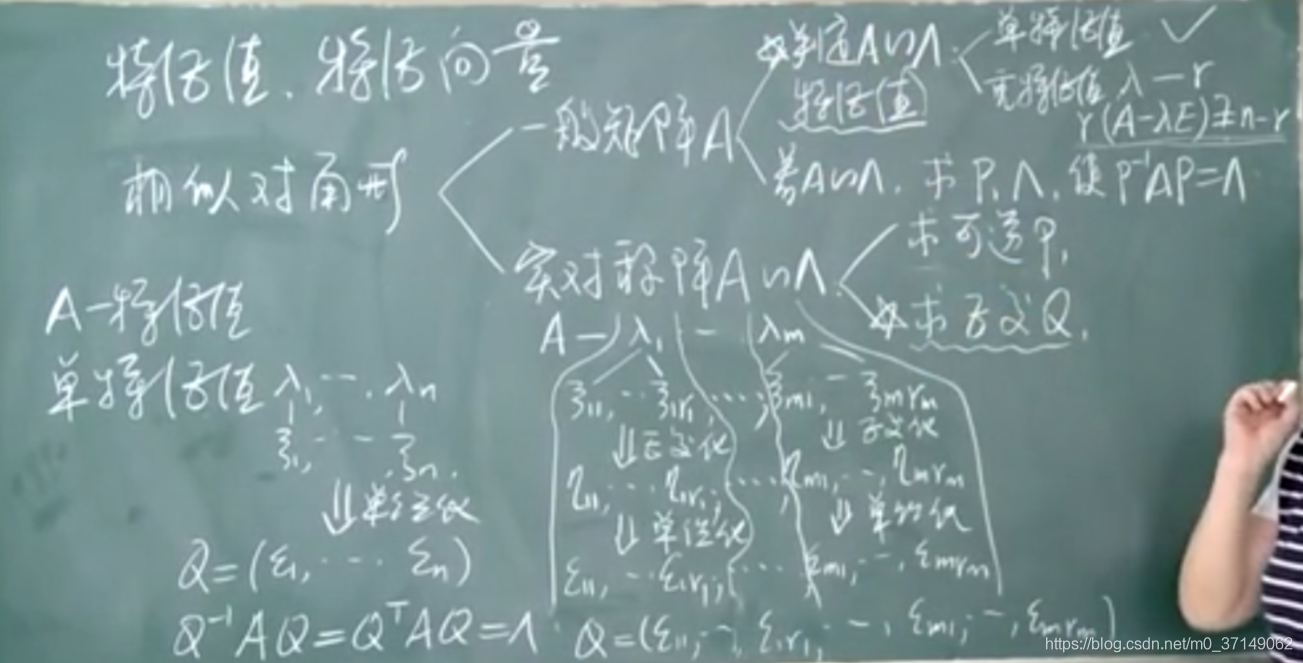 特征值、特征向量
相似对角形
一般矩阵A
☆判定A∽Λ:
特征值
单特征值 ✓
重特征值 λ—r
r(A-λE)≟n-r
若A∽Λ, 求P,Λ, 使P⁻¹AP=Λ
实对称阵A∽Λ:
求可逆P,
☆求正交Q,
A-特征值
单特征值λ₁, … λₙ
ξ₁, … ξₙ.
⇓单位化
Q=(ε₁, … εₙ)
Q⁻¹AQ=QᵀAQ=Λ
A — λ₁ … λₘ
ξ₁₁, … ξ₁ᵣ₁, …; ξₘ₁, … ξₘᵣₘ
⇓正交化 ⇓正交化
η₁₁, … η₁ᵣ₁; …; ηₘ₁, …, ηₘᵣₘ
⇓单位化 ⇓单位化
ε₁₁, … ε₁ᵣ₁; … εₘ₁, …, εₘᵣₘ
Q=(ε₁₁, …, ε₁ᵣ₁, …, εₘ₁, …, εₘᵣₘ)
https://blog.csdn.net/m0_37149062